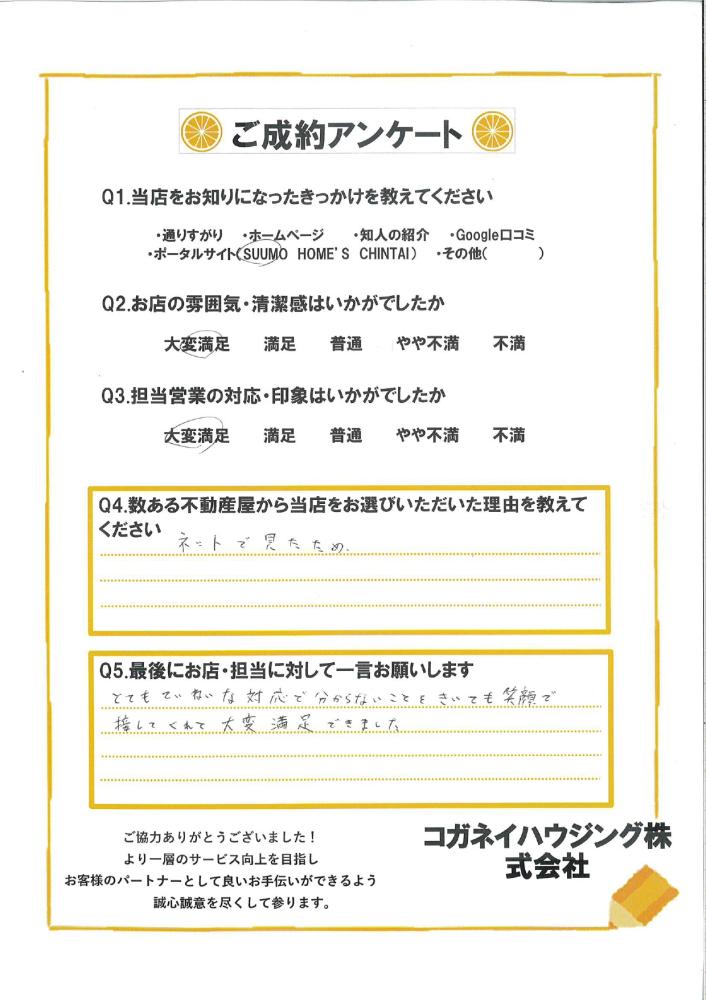 ご成約アンケート
Q1.当店をお知りになったきっかけを教えてください
・通りすがり ・ホームページ ・知人の紹介 ・Google口コミ
・ポータルサイト(SUUMO HOME'S CHINTAI) ・その他( )
Q2.お店の雰囲気・清潔感はいかがでしたか
大変満足 満足 普通 やや不満 不満
Q3.担当営業の対応・印象はいかがでしたか
大変満足 満足 普通 やや不満 不満
Q4.数ある不動産屋から当店をお選びいただいた理由を教えて
ください
ネットで見たため.
Q5.最後にお店・担当に対して一言お願いします
とてもていねいな対応で分からないことをきいても笑顔で
接してくれて大変満足できました
ご協力ありがとうございました！
より一層のサービス向上を目指し
お客様のパートナーとして良いお手伝いができるよう
誠心誠意を尽くして参ります。
コガネイハウジング株
式会社